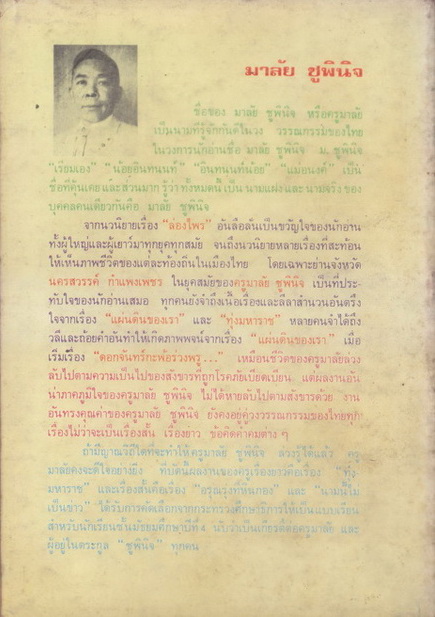 มาลัย ชูพินิจ
ชื่อของ มาลัย ชูพินิจ หรือครูมาลัย
เป็นนามที่รู้จักกันดีในวง วรรณกรรมของไทย
ในวงการนักอ่านชื่อ มาลัย ชูพินิจ ม. ชูพินิจ
“เรียมเอง” “น้อยอินทนนท์” “อินทนนท์น้อย” “แม่อนงค์” เป็น
ชื่อที่คุ้นเคย และส่วนมาก รู้ว่า ทั้งหมดนี้ เป็น นามแฝง และ นามจริง ของ
บุคคลคนเดียวกันคือ มาลัย ชูพินิจ
จากนวนิยายเรื่อง “ล่องไพร” อันลือลั่นเป็นขวัญใจของนักอ่าน
ทั้งผู้ใหญ่และผู้เยาว์มาทุกยุคทุกสมัย จนถึงนวนิยายหลายเรื่องที่สะท้อน
ให้เห็นภาพชีวิตของแต่ละท้องถิ่นในเมืองไทย โดยเฉพาะย่านจังหวัด
นครสวรรค์ กำแพงเพชร ในยุคสมัยของครูมาลัย ชูพินิจ เป็นที่ประ-
ทับใจของนักอ่านเสมอ ทุกคนยังจำถึงเนื้อเรื่องและลีลาสำนวนอันตรึง
ใจจากเรื่อง “แผ่นดินของเรา” และ “ทุ่งมหาราช” หลายคนจำได้ถึง
วลีและถ้อยคำอันทำให้เกิดภาพพจน์จากเรื่อง “แผ่นดินของเรา” เมื่อ
เริ่มเรื่อง “ดอกจันทร์กะพ้อร่วงพรู...” เหมือนชีวิตของครูมาลัยล่วง
ลับไปตามความเป็นไปของสังขารที่ถูกโรคภัยเบียดเบียน แต่ผลงานอัน
น่าภาคภูมิใจของครูมาลัย ชูพินิจ ไม่ได้หายลับไปตามสังขารด้วย งาน
อันทรงคุณค่าของครูมาลัย ชูพินิจ ยังคงอยู่คู่วงวรรณกรรมของไทยทุก
เรื่องไม่ว่าจะเป็นเรื่องสั้น เรื่องยาว ข้อคิดคำคมต่าง ๆ
ถ้ามีญาณวิถีใดที่จะทำให้ครูมาลัย ชูพินิจ ล่วงรู้ได้แล้ว ครู
มาลัยคงจะดีใจอย่างยิ่ง ที่บัดนี้ผลงานของครูเรื่องยาวคือเรื่อง “ทุ่ง-
มหาราช” และเรื่องสั้นคือเรื่อง “อรุณรุ่งที่หินกอง” และ
เป็นข่าว” ได้รับการคัดเลือกจากกระทรวงศึกษาธิการให้เป็นแบบเรียน
สำหรับนักเรียนชั้นมัธยมศึกษาปีที่ 4 นับว่าเป็นเกียรติต่อครูมาลัย และ
ผู้อยู่ในตระกูล “ชูพินิจ” ทุกคน